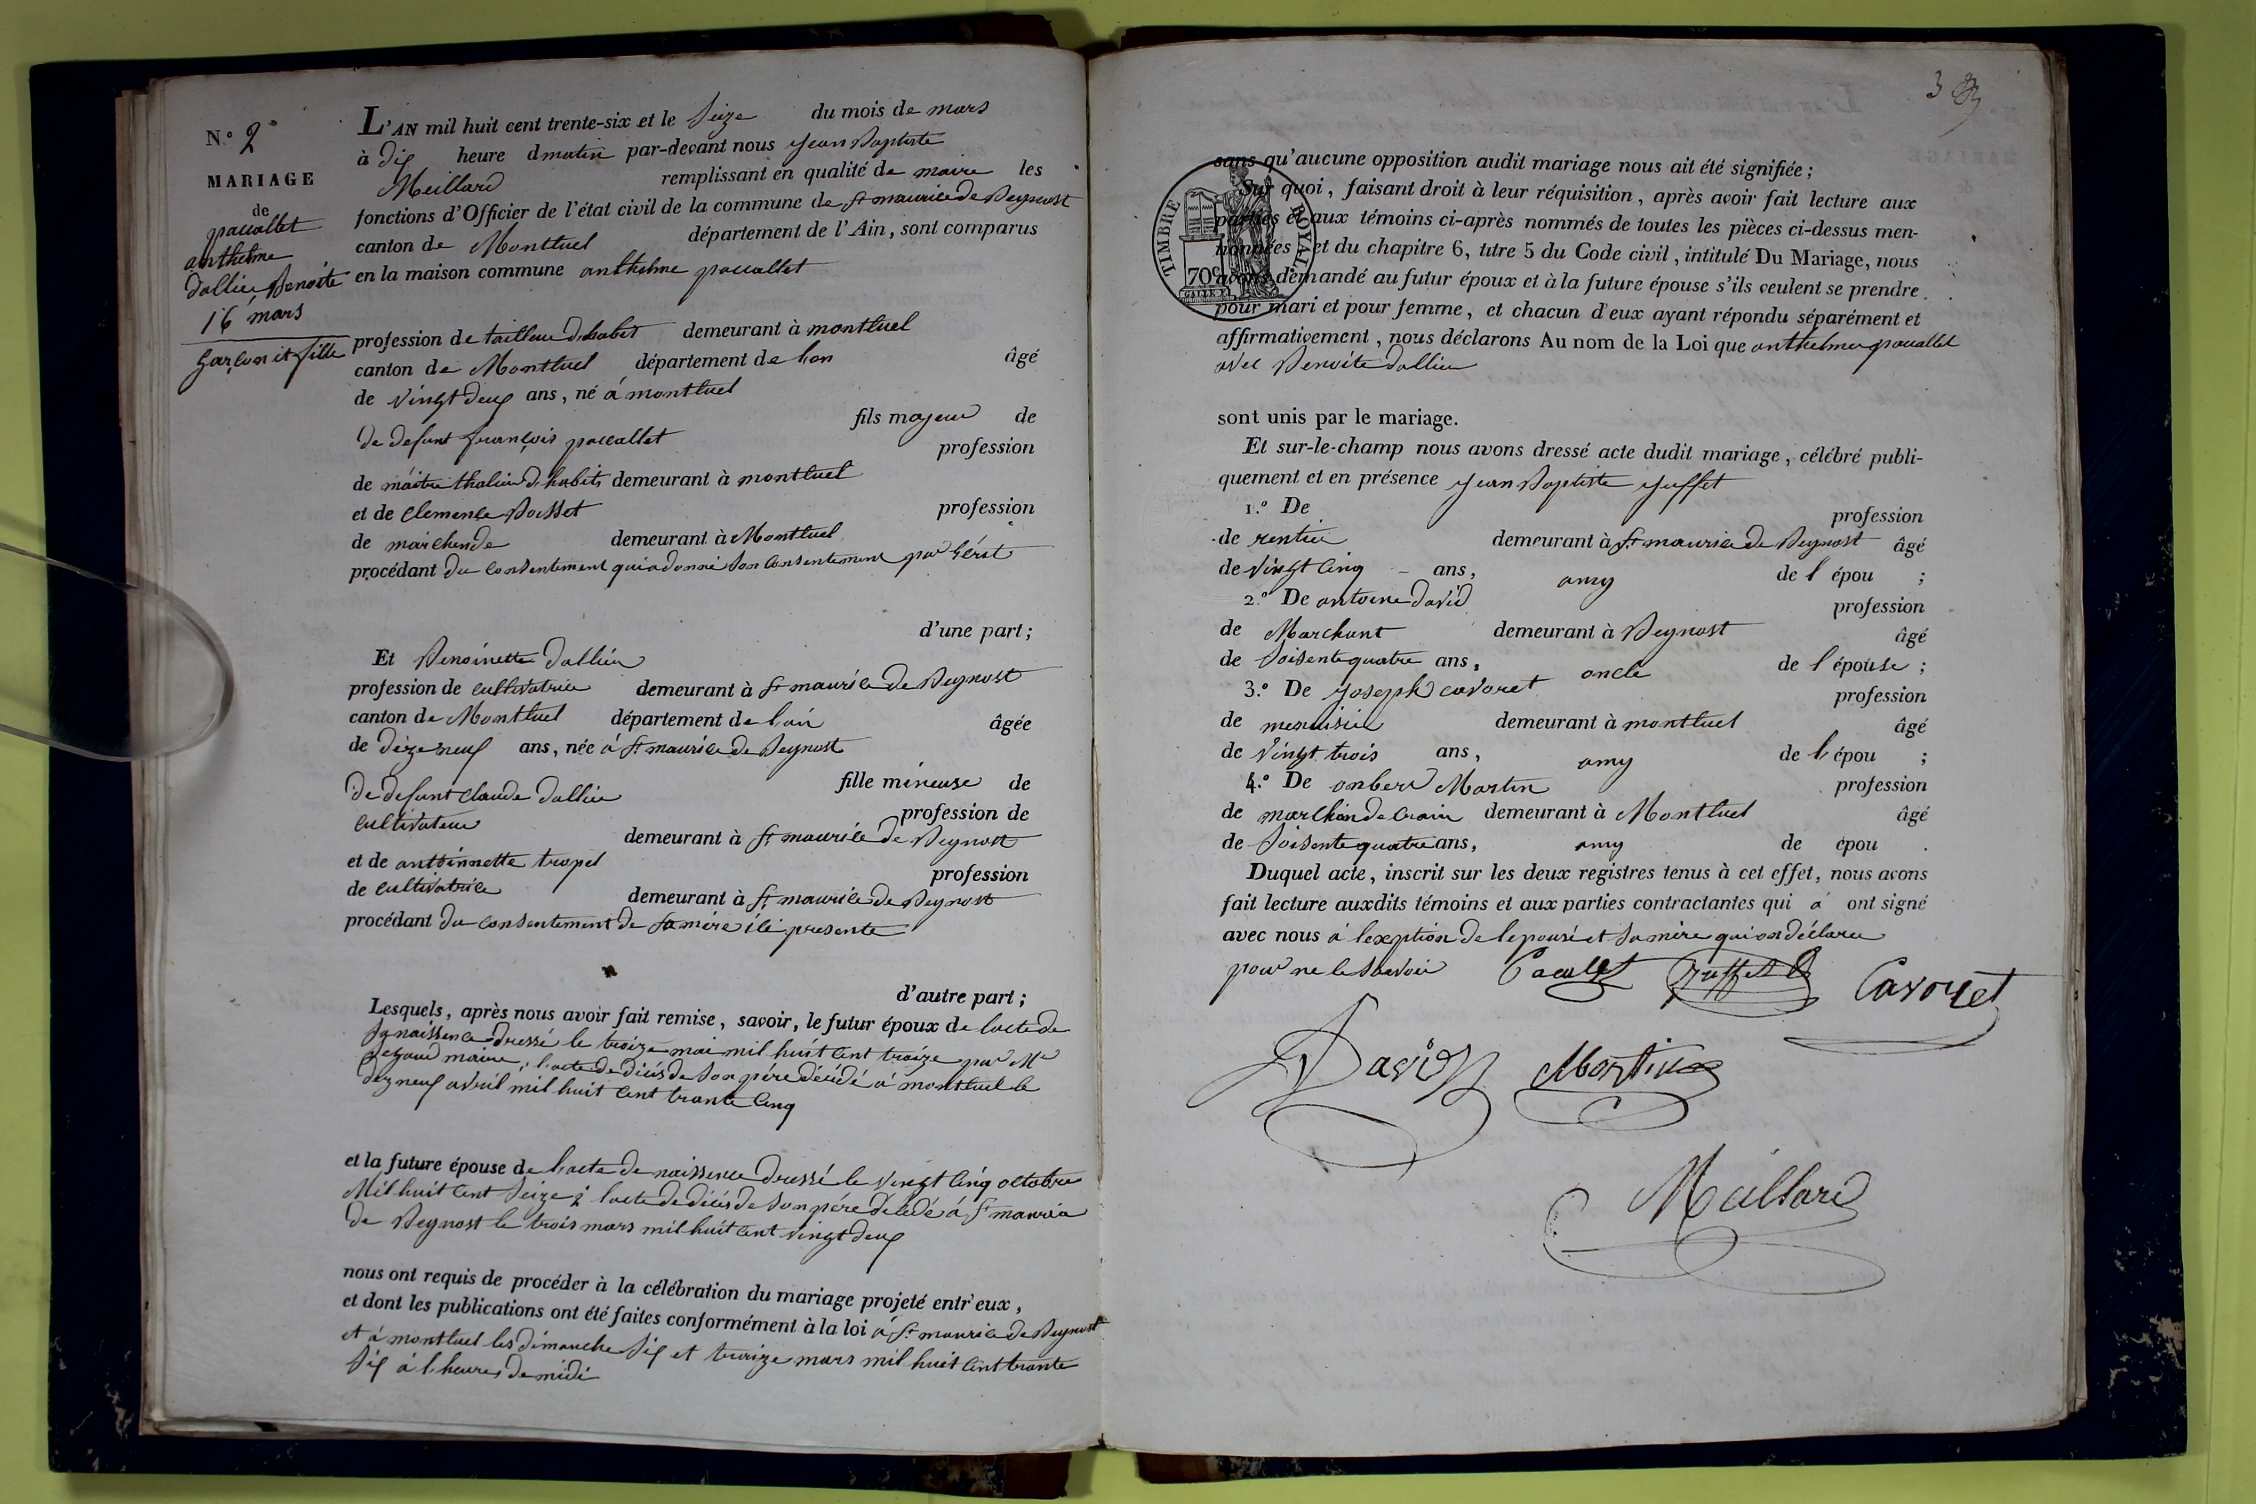 N.° 2°
MARIAGE
de
paccallet
anthelme
dallier Benoite
16 mars
garçon et fille
L'AN mil huit cent trente-six et le seize du mois de mars
à dix heure d matin par-devant nous Jean Baptiste
Meillard remplissant en qualité de maire les
fonctions d'Officier de l'état civil de la commune de St maurice de Beynost
canton de Montluel département de l'Ain, sont comparus
en la maison commune anthelme paccallet
profession de tailleur d'habit demeurant à montluel
canton de Montluel département de âgé
de vingt deux ans, né à montluel
fils majeur de
de defunt françois paccallet profession
de maitre d'habits demeurant à montluel
et de Clemence Boisset profession
de marchende demeurant à Montluel
procédant du consentement qui a donné son consentement par
d'une part;
Et Benoinette dallier
profession de cultivatrice demeurant à St maurice de Beynost
canton de Montluel département de l'ain âgée
de dize neuf ans, née à St maurice de Beynost
fille mineuse de
de defunt Claude dallier profession de
cultivateur demeurant à St maurice de Beynost
et de antoinnette tropel profession
de cultivatrice demeurant à St maurice de Beynost
procédant du consentement de sa mère ici presente
d'autre part;
Lesquels, après nous avoir fait remise, savoir, le futur époux de l'acte de
sa naissence dressé le traize mai mil huit cent traize par Mr
maire, l'acte de décis de son père décédé à montluel le
diz neuf avril mil huit cent trante cinq
et la future épouse de l'acte de naissence dressé le vingt cinq octobre
Mil huit cent seize & l'acte de décis de son père décédé à St maurice
de Beynost le trois mars mil huit cent vingt deux
nous ont requis de procéder à la célébration du mariage projeté entr'eux,
et dont les publications ont été faites conformément à la loi à St maurice de Beynost
et à montluel les dimanche six et traize mars mil huit cent trante
six à l'heures de midi
3
TIMBRE ROYAL
70c
sans qu'aucune opposition audit mariage nous ait été signifiée;
Sur quoi, faisant droit à leur réquisition, après avoir fait lecture aux
parties et aux témoins ci-après nommés de toutes les pièces ci-dessus men-
tionnées, et du chapitre 6, titre 5 du Code civil, intitulé Du Mariage, nous
avons demandé au futur époux et à la future épouse s'ils veulent se prendre
pour mari et pour femme, et chacun d'eux ayant répondu séparément et
affirmativement, nous déclarons Au nom de la Loi que anthelme paccallet
avec Benoite dallier
sont unis par le mariage.
Et sur-le-champ nous avons dressé acte dudit mariage, célébré publi-
quement et en présence Jean Baptiste Juffet
1.° De profession
de rentier demeurant à St maurice de Beynost âgé
de vingt cinq ans, amy de l épou ;
2.° De antoine david profession
de Marchant demeurant à Beynost âgé
de soisente quatre ans, oncle de l'épouse;
3.° De Joseph cavoret profession
de menuisier demeurant à montluel âgé
de vingt trois ans, amy de l'épou ;
4.° De Martin profession
de marchan de demeurant à Montluel âgé
de soisente quatre ans, amy de épou .
Duquel acte, inscrit sur les deux registres tenus à cet effet, nous avons
fait lecture auxdits témoins et aux parties contractantes qui ont signé
avec nous à l'exption de lepouse et sa mère qui on déclaree
pour ne le savoir Pacalet Juffet Cavoret
David Martin
Meillard